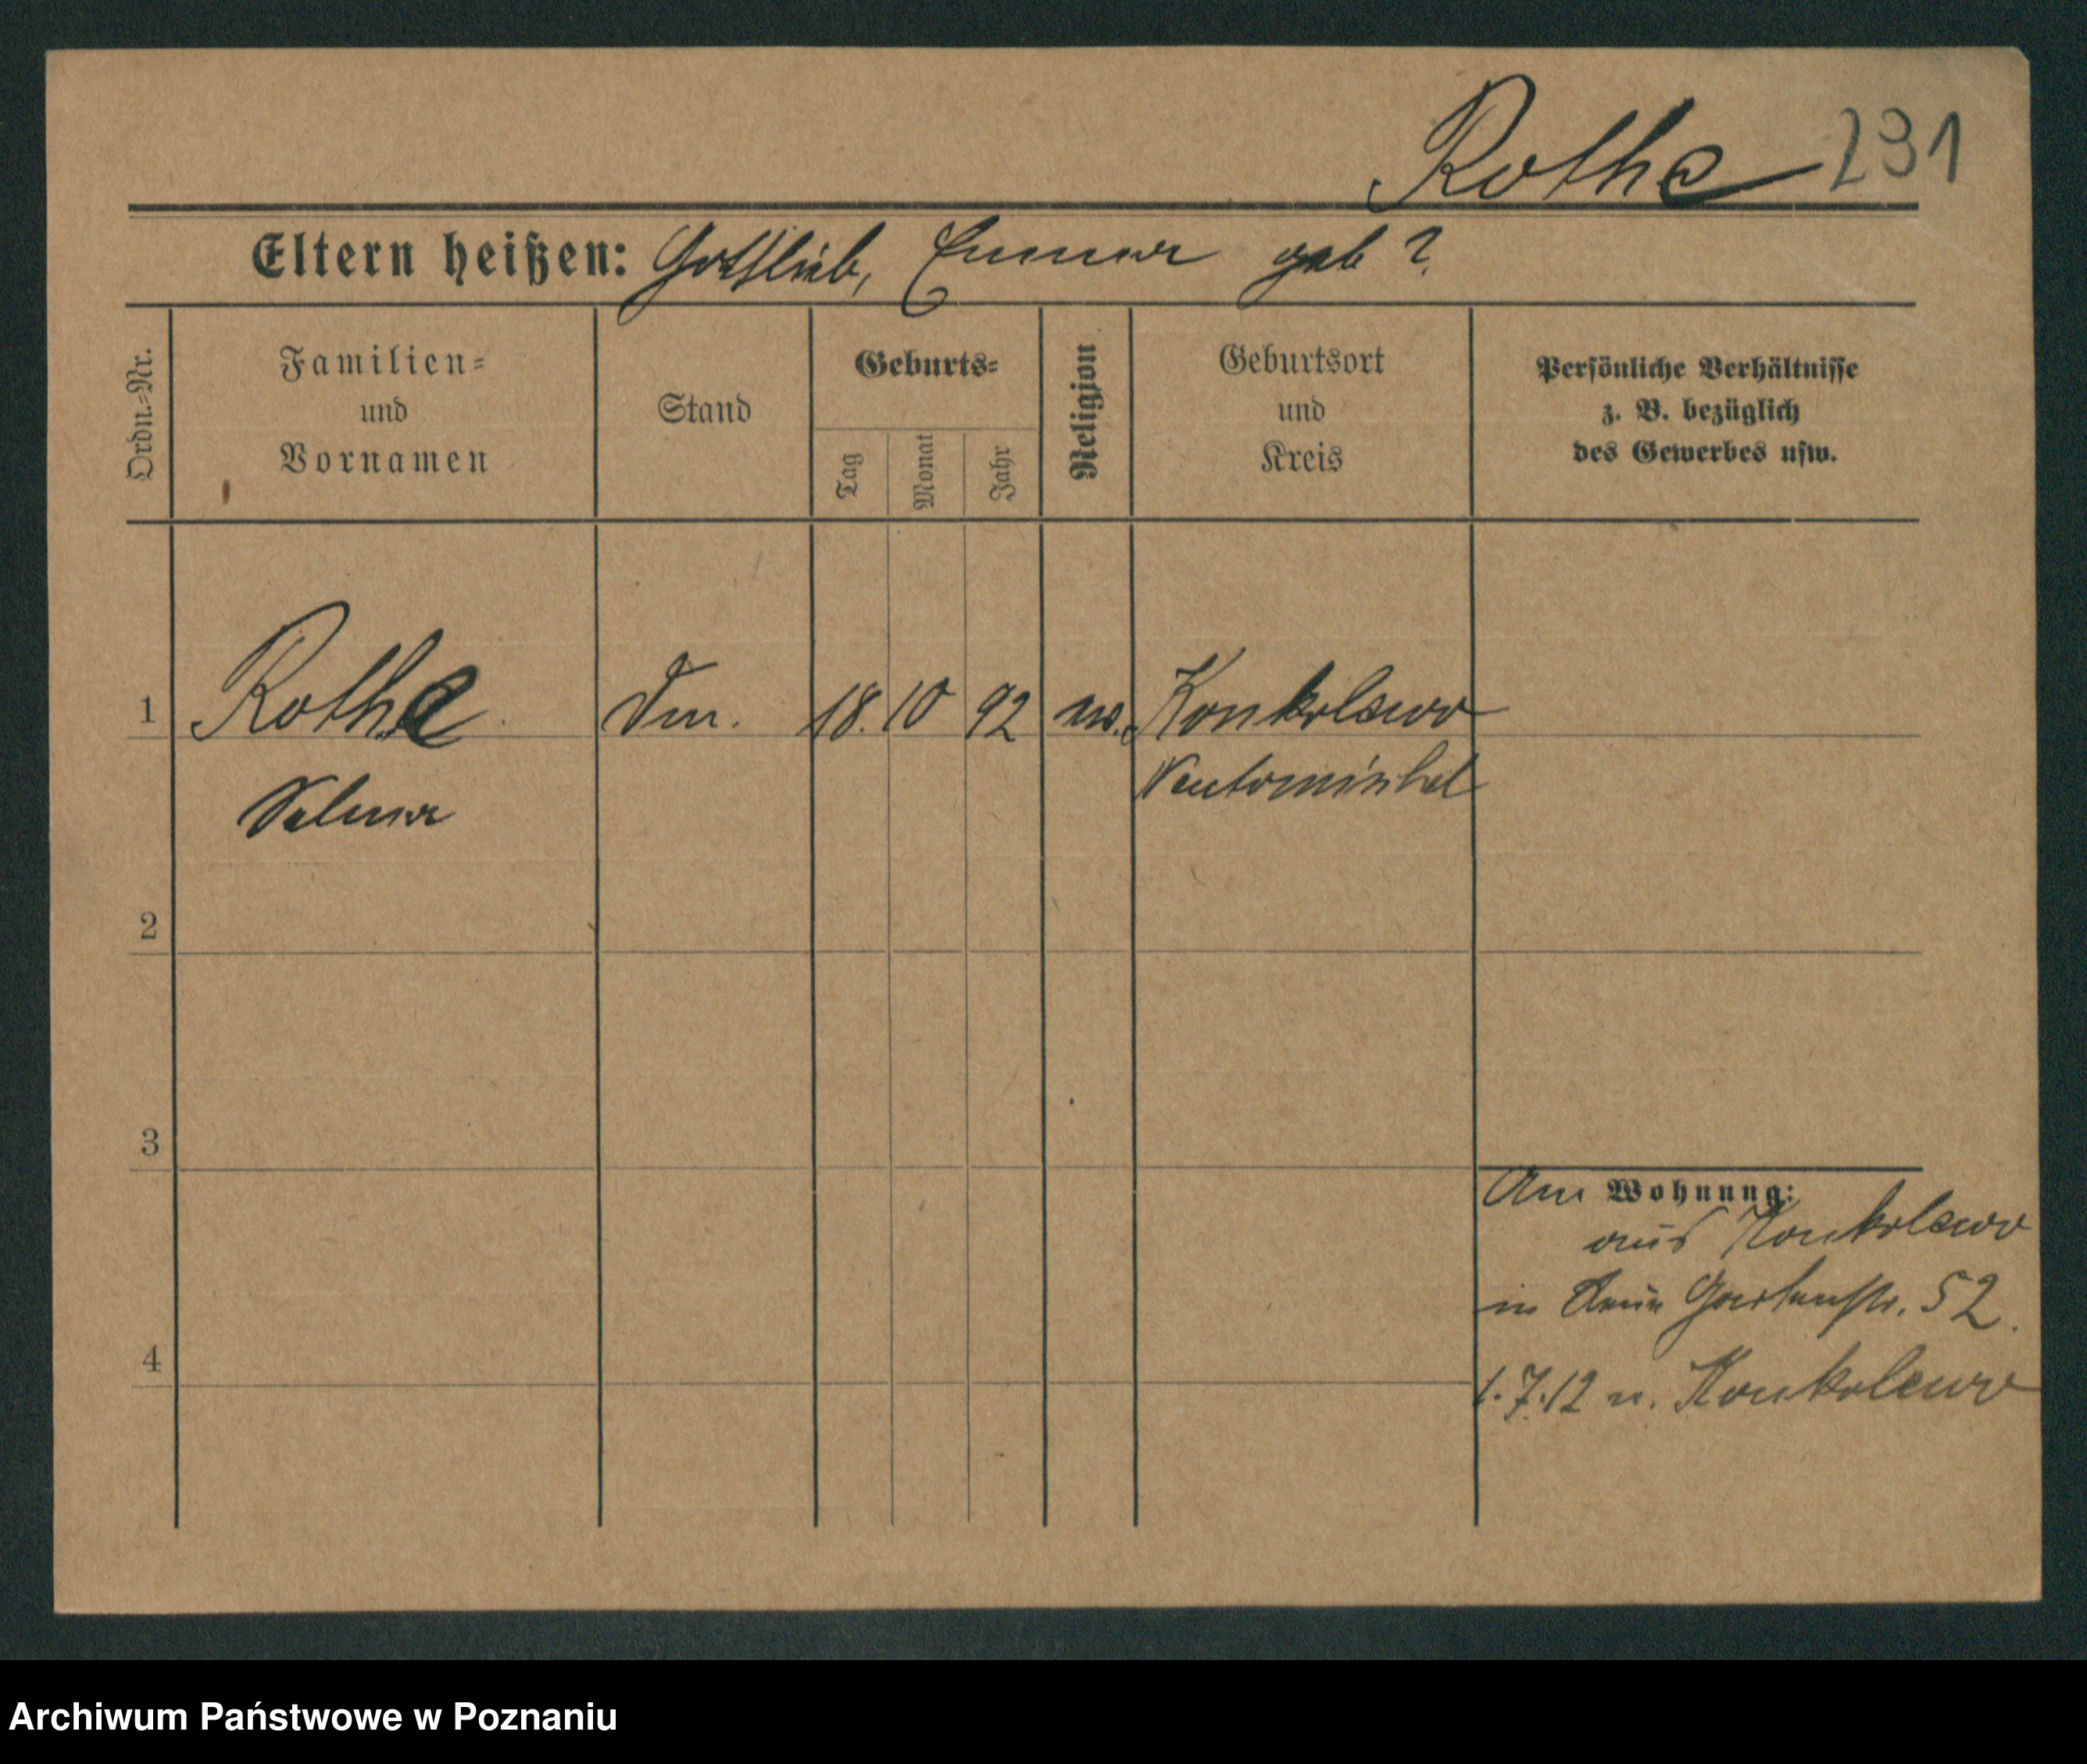 Rothe 231
Eltern heißen: Gottlieb, Emma geb ?
Ordn.-Nr.
Familien-
und
Vornamen
Stand
Geburts-
Tag
Monat
Jahr
Religion
Geburtsort
und
Kreis
Persönliche Verhältnisse
z. B. bezüglich
des Gewerbes usw.
1 Rothe 18. 10 92 ev. Konkolewo
Selma Neutomischel
2
3
Wohnung:
aus Konkolewo
in Gartenstr. 52.
4
1.7.12 n. Konkolewo
Archiwum Państwowe w Poznaniu